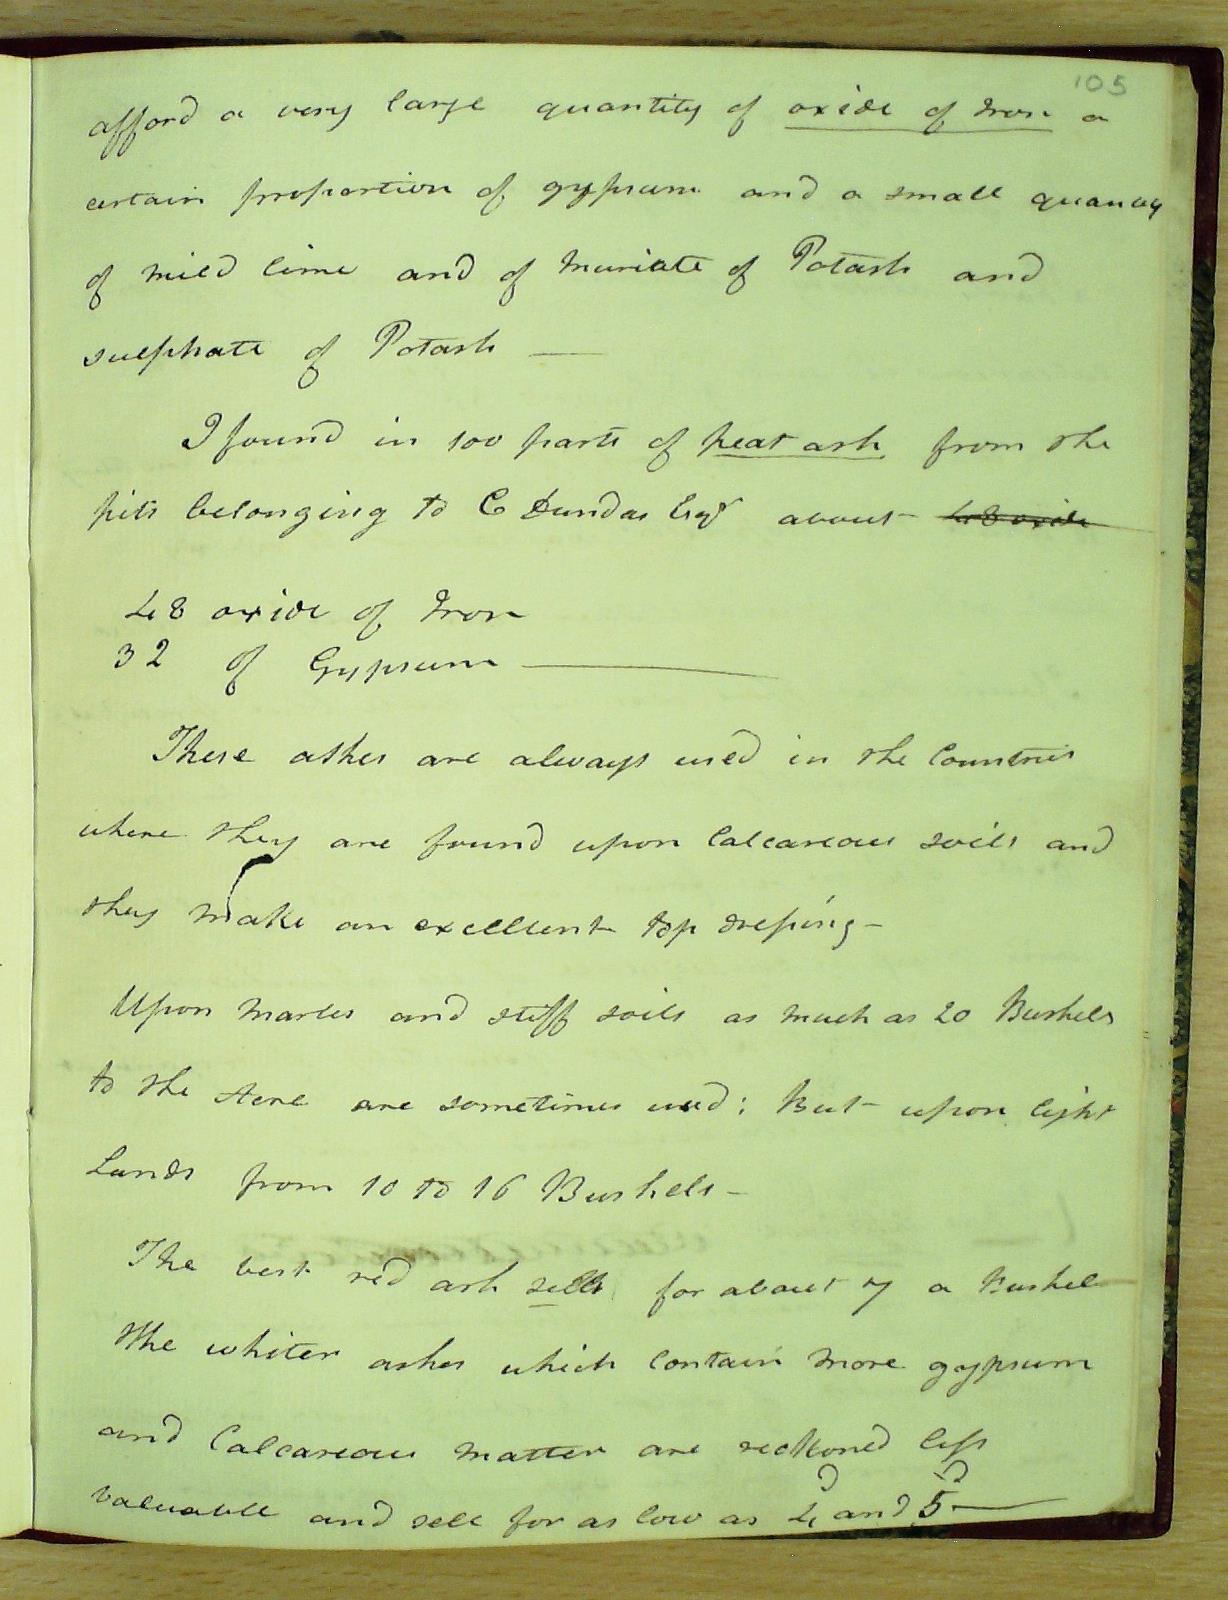 105
afford a very large quantity of oxide of Iron a
certain proportion of gypsum and a small quantity
of mild lime and of Muriate of Potash and
sulphate of Potash —
I found in 100 parts of peat ash from the
pits belonging to C Dundas Esqr about 48 oxide
48 oxide of Iron
32 of Gypsum —
These ashes are always used in the Countries
where they are found upon Calcareous soils and
they make an excellent top dressing -
Upon marles and stiff soils as much as 20 Bushels
to the Acre are sometimes used: But upon light
Lands from 10 to 16 Bushels -
The best red ash sells for about 7 a Bushel
The whiter ashes which contain more gypsum
and Calcareous matter are reckoned less
valuable and sell for as low as 4d and 5d —